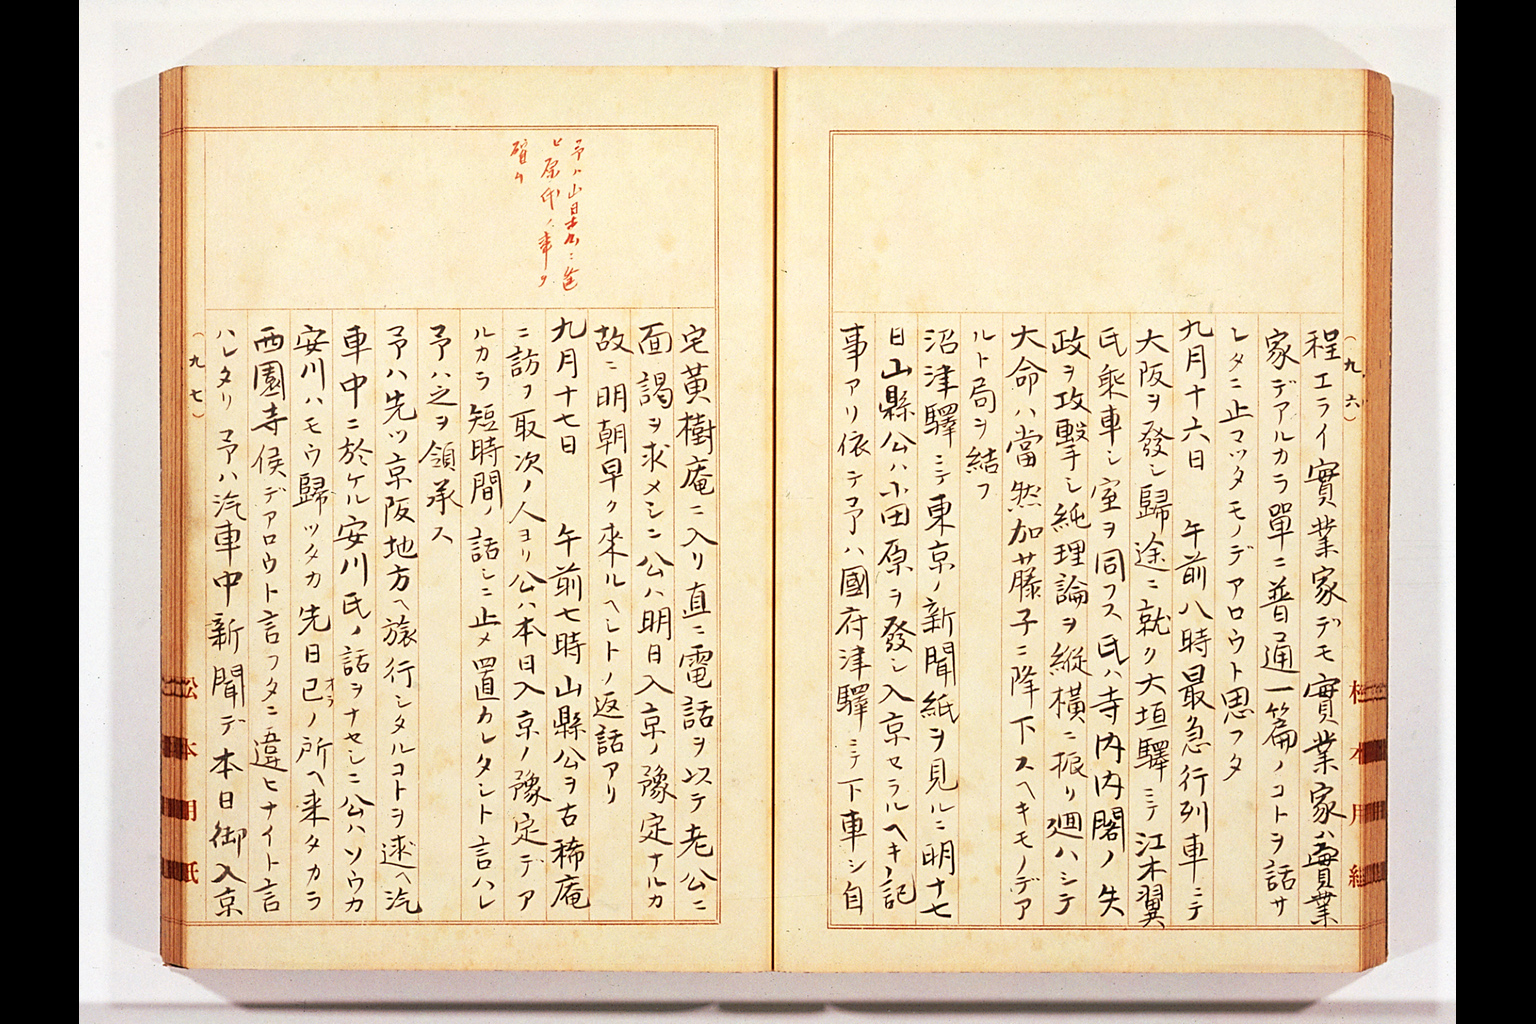 (九六)
程エライ實業家デモ實業家ハ實業
家デアルカラ單ニ普通一篇ノコトヲ話サ
レタニ止マツタモノデアロウト思フタ
九月十六日 午前八時最急行列車ニテ
大阪ヲ發シ歸途ニ就ク大垣驛ニテ江木翼
氏乘車シ室ヲ同フス氏ハ寺内内閣ノ失
政ヲ攻擊シ純理論ヲ縱橫ニ振リ廻ハシテ
大命ハ當然加藤子ニ降下スヘキモノデア
ルト局ヲ結フ
沼津驛ニテ東京ノ新聞紙ヲ見ルニ明十七
日山縣公ハ小田原ヲ發シ入京セラルヘキ記
事アリ依テ予ハ國府津驛ニテ下車シ自
松本用紙
宅黃樹庵ニ入リ直ニ電話ヲ以テ老公ニ
面謁ヲ求メシニ公ハ明日入京ノ豫定ナルカ
故ニ明朝早ク來ルヘシトノ返話アリ
九月十七日 午前七時山縣公ヲ古稀庵
ニ訪フ取次ノ人ヨリ公ハ本日入京ノ豫定デア
ルカラ短時間ノ話シニ止メ置カレタシト言ハレ
予ハ之ヲ領承ス
予ハ先ツ京阪地方ヘ旅行シタルコトヲ述ヘ汽
車中ニ於ケル安川氏ノ話ヲナセシニ公ハソウカ
安川ハモウ歸ツタカ先日己ノ所ヘ来タカラ
オラ
西園寺侯デアロウト言フタニ違ヒナイト言
ハレタリ予ハ汽車中新聞デ本日御入京
(九七)
予ハ山縣公ニ逢
ヒ原氏ノ事ヲ
確ム
松本用紙